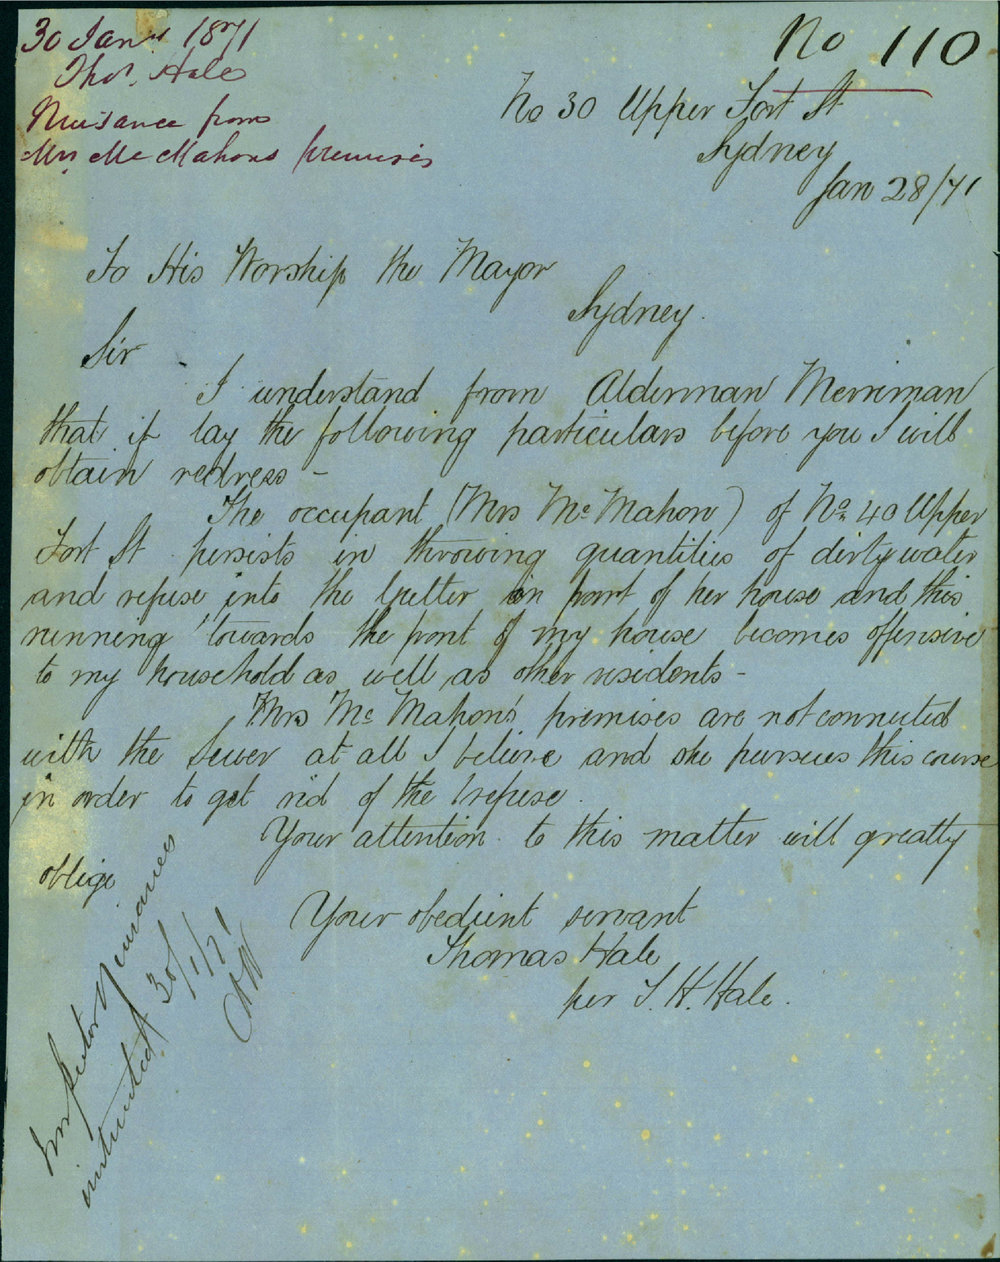 30 Jany 1871
Thos. Hale
Nuisance from
Mrs McMahons premises
No 110
No 30 Upper Fort St
Sydney
Jan 28/71
To His Worship the Mayor
Sydney.
Sir
I understand from Alderman Merriman
that if lay the following particulars before you I will
obtain redress -
The occupant (Mrs McMahon) of No 40 Upper
Fort St persists in throwing quantities of dirty water
and refuse into the Gutter in front of her house and this
running towards the front of my house becomes offensive
to my household as well as other residents -
Mrs McMahon's premises are not connected
with the Sewer at all I believe and she pursues this course
in order to get rid of the refuse.
Your attention to this matter will greatly
oblige
Your obedient servant
Thomas Hale
per T. H. Hale.
Inspector Nuisances
instructed 30/1/71